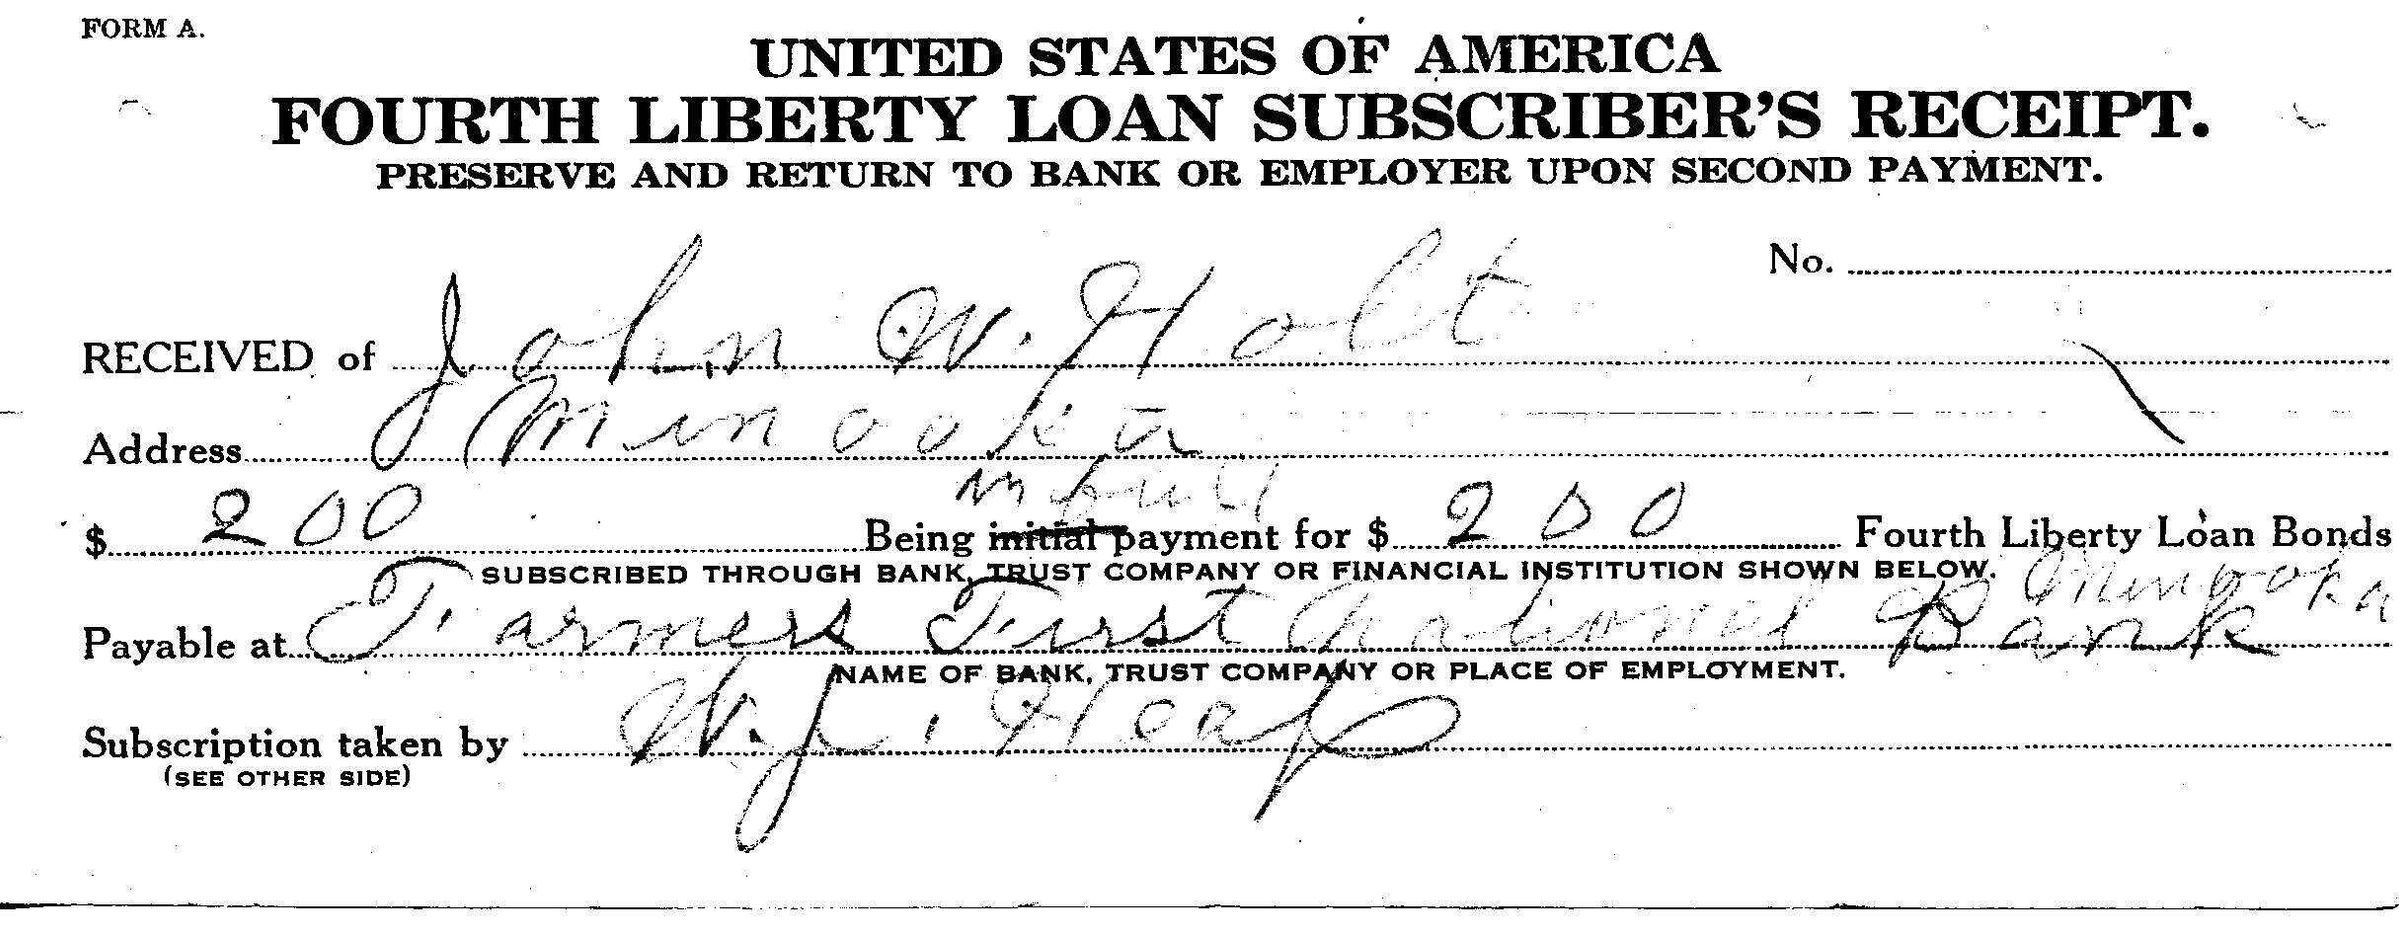 FORM A.
UNITED STATES OF AMERICA
FOURTH LIBERTY LOAN SUBSCRIBER'S RECEIPT.
PRESERVE AND RETURN TO BANK OR EMPLOYER UPON SECOND PAYMENT.
No.
RECEIVED of John W. Holt
Address Minooka
in full
$ 200 Being initial payment for $ 200 Fourth Liberty Loan Bonds
SUBSCRIBED THROUGH BANK, TRUST COMPANY OR FINANCIAL INSTITUTION SHOWN BELOW.
Minooka
Payable at Farmers First National Bank
NAME OF BANK, TRUST COMPANY OR PLACE OF EMPLOYMENT.
Subscription taken by W. J. Heap
(SEE OTHER SIDE)